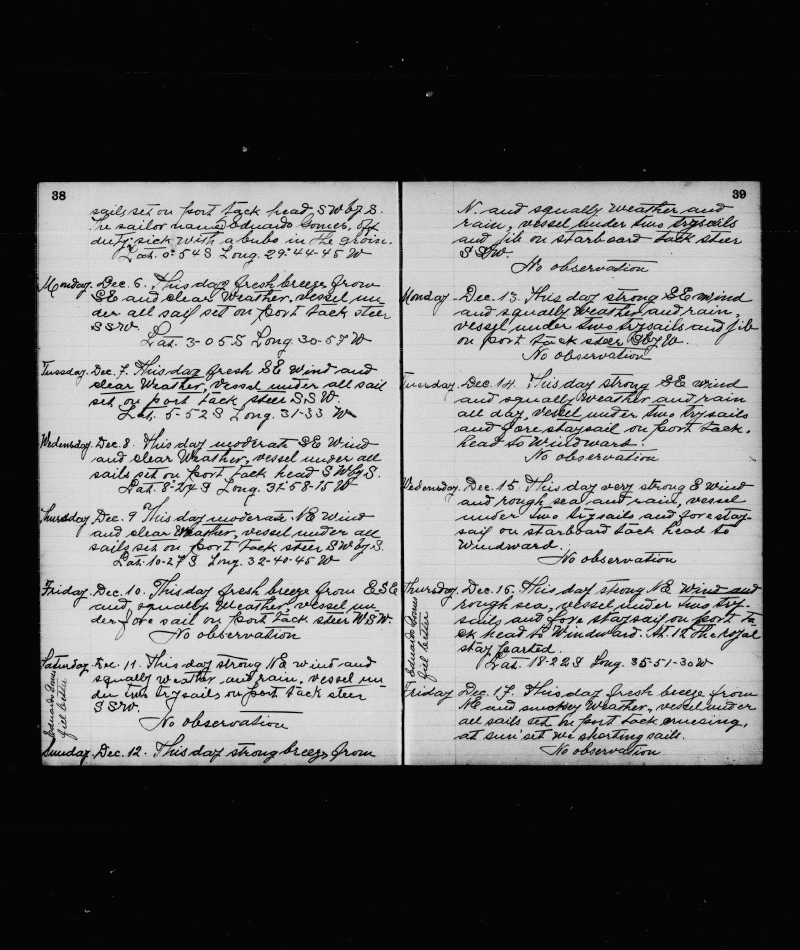 38
sails set on port tack head SW by S.
The sailor name Eduardo Gomes, off
duty sick with a bubo in the groin.
Lat. 0°54 S Long. 29°44-45 W
Monday. Dec. 6. This day fresh breeze from
SE and clear Weather, vessel un-
der all sail set on port tack steer
SSW.
Lat. 3-05 S Long 30-57 W
Tuesday. Dec. 7. This day fresh SE Wind and
clear Weather, vessel under all sail
set on port tack steer SSW.
Lat. 5-52 S Long. 31-33 W
Wednesday. Dec. 8. This day moderate SE Wind
and clear Weather, vessel under all
sails set on port tack head SW by S.
Lat. 8°24 S Long. 31°58-15 W
Thursday Dec. 9 This day moderate NE Wind
and clear Weather, vessel under all
sails set on port tack steer SW by S.
Lat. 10-27 S Long. 32-40-45 W
Friday. Dec. 10. This day fresh breeze from ESE
and squally Weather, vessel un-
der fore sail on port tack steer WSW.
No observation
Saturday. Dec. 11. This day strong NE wind and
squally weather and rain, vessel un-
der two trysails on port tack steer
SSW.
No observation
Eduardo Gomes
fill better
Sunday. Dec. 12. This day strong breeze from
39
N. and squally weather and
rain, vessel under two trysails
and jib on starboard tack steer
SSW.
No observation
Monday Dec. 13. This day strong SE wind
and squally Weather and rain,
vessel under two trysails and jib
on port tack steer S by W.
No observation
Tuesday. Dec. 14. This day strong SE wind
and squally Weather and rain
all day, vessel under two trysails
and fore staysail on port tack.
head to Windward.
No observation
Wednesday. Dec. 15. This day very strong E wind
and rough sea, and rain, vessel
under two trysails and fore stay-
sail on starboard tack head to
Windward.
No observation
Thursday. Dec. 16. This day strong NE Wind and
rough sea, vessel under two try-
sails and fore staysail on port ta-
ck head to Windward. At 12 the royal
stay parted.
Lat. 18-22 S Long. 35-51-30 W
Eduardo Gomes
fill better
Friday Dec. 17. This day fresh breeze from
NE and smokey Weather, vessel under
all sails set on port tack cruesing,
at sun set we shorting sail.
No observation